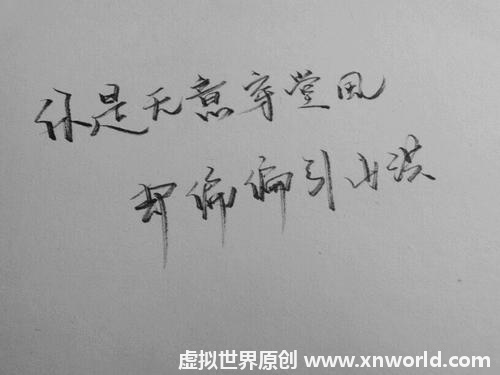 你是无意穿堂风
却偏偏引山洪
虚拟世界原创 www.xnworld.com